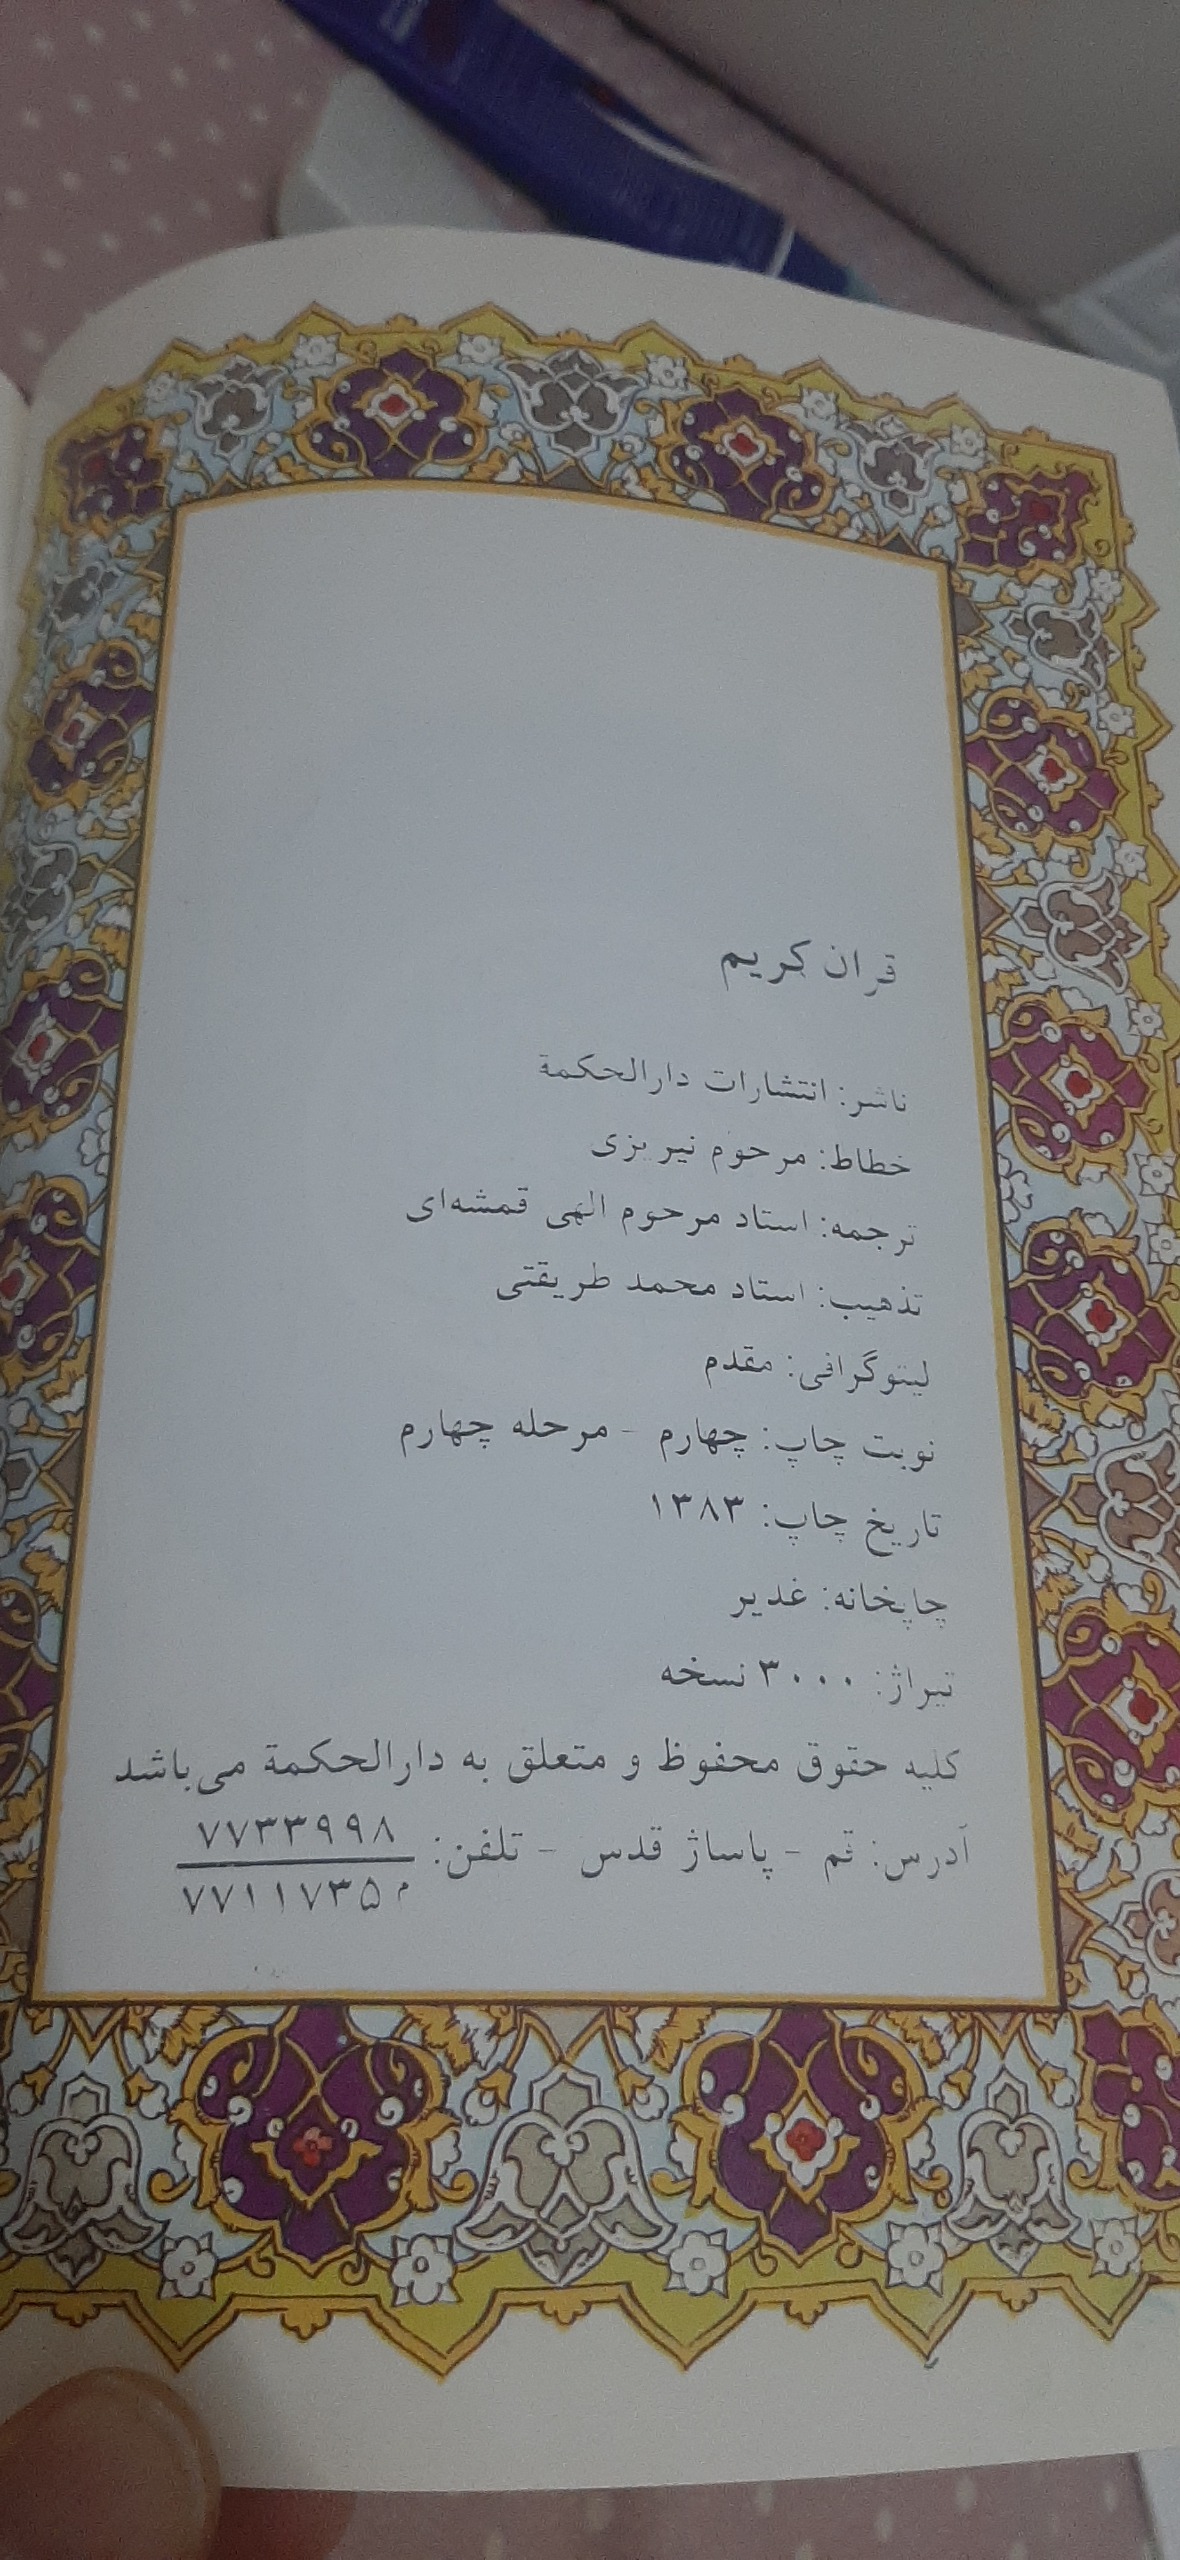 قرآن کریم
ناشر: انتشارات دارالحکمة
خطاط: مرحوم نیریزی
ترجمه: استاد مرحوم الهی قمشه‌ای
تذهیب: استاد محمد طریقتی
لیتوگرافی: مقدم
نوبت چاپ: چهارم - مرحله چهارم
تاریخ چاپ: ۱۳۸۳
چاپخانه: غدیر
تیراژ: ۳۰۰۰ نسخه
کلیه حقوق محفوظ و متعلق به دارالحکمة می‌باشد
آدرس: قم - پاساژ قدس - تلفن: ۷۷۳۳۹۹۸